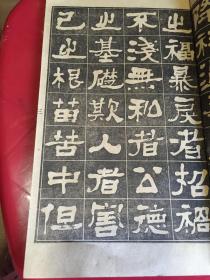 之福暴戾者招禍
不淺無私者公德
之基礎欺人者害
己之根苗苦中但